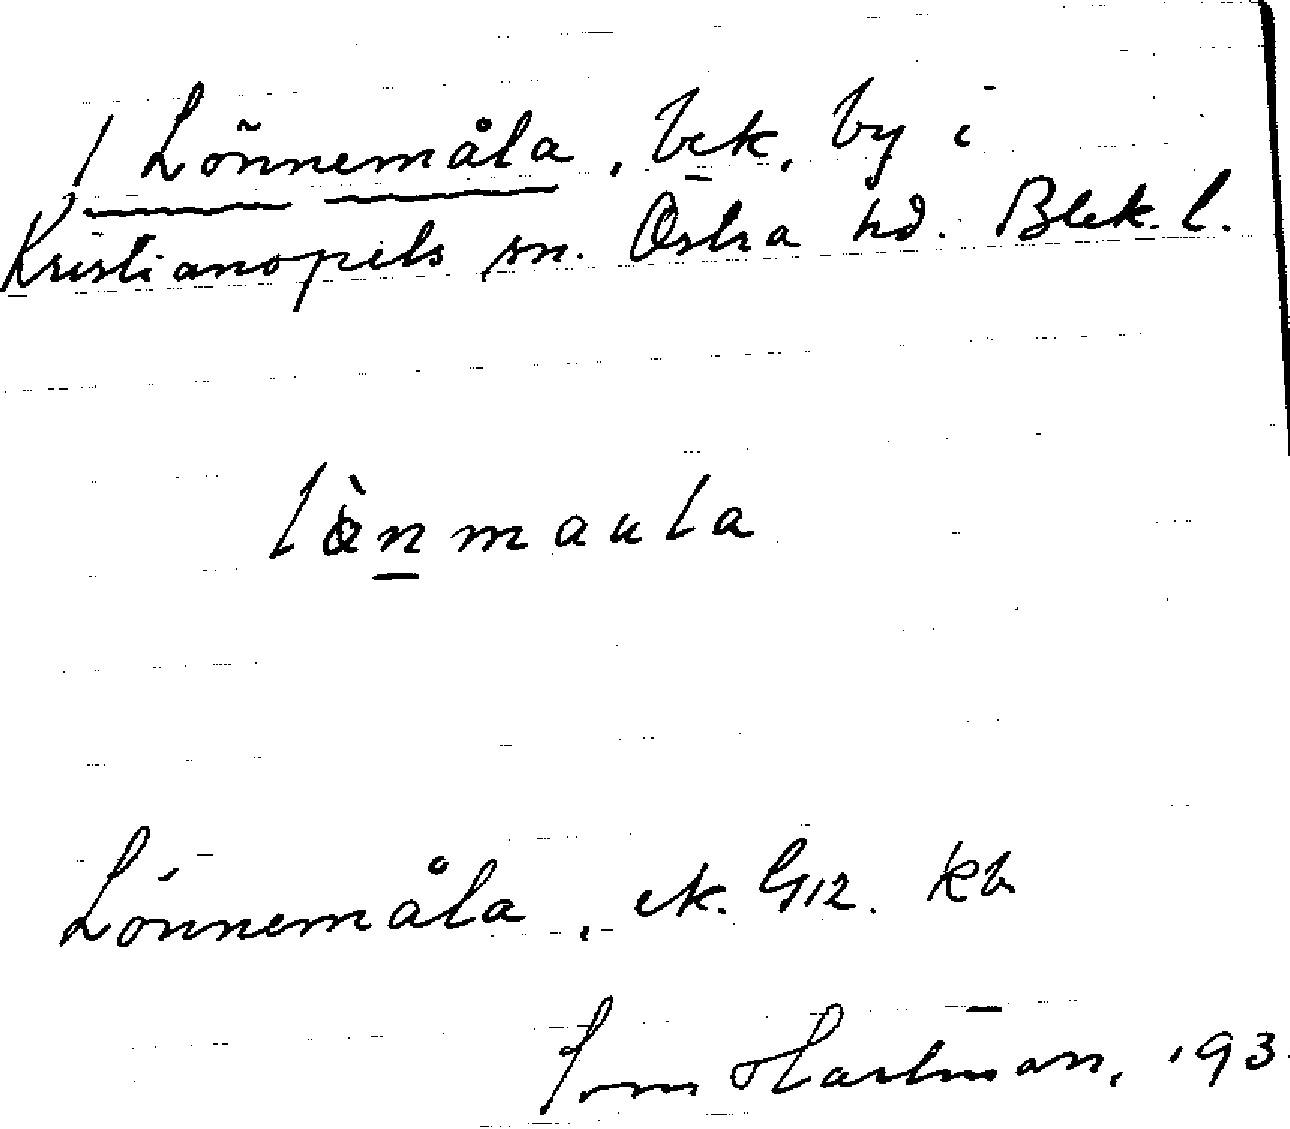 1 Lönnemåla, bek. by i
Kristianopels sn. Östra hd. Blek. l.
lönmaula
Lönnemåla, ek. G12. kb
Hartman, 193